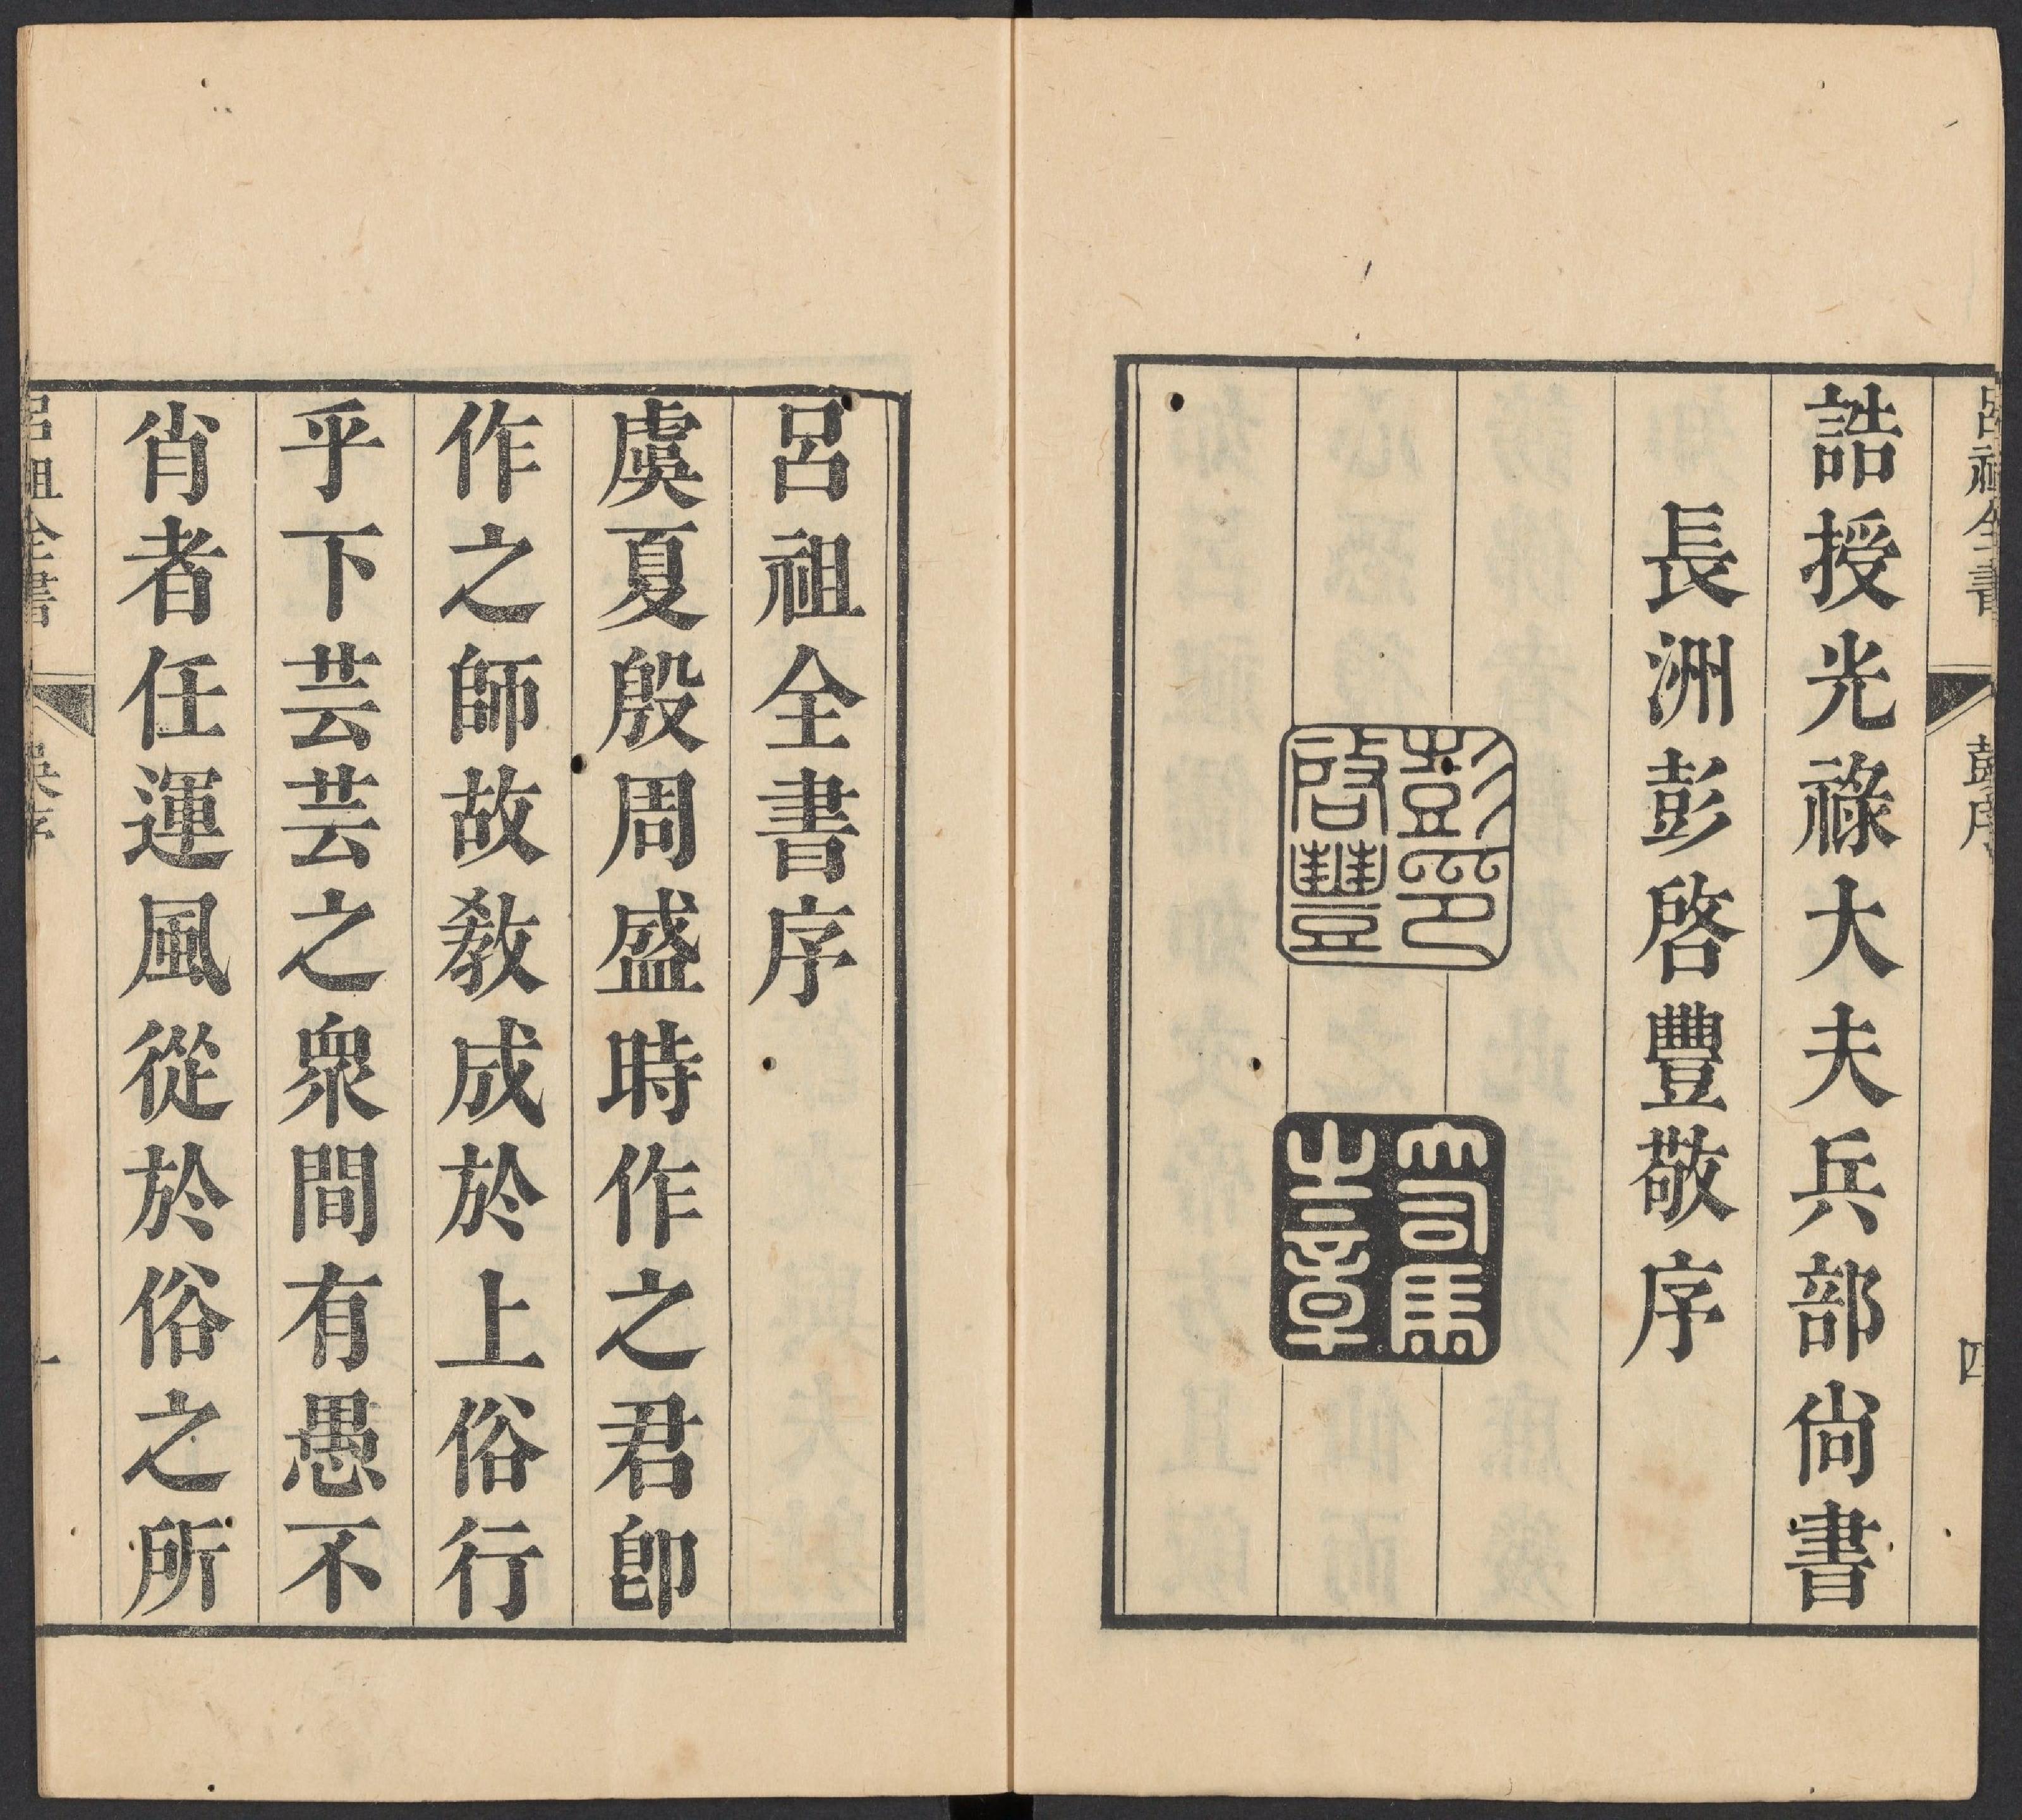 呂祖全書
彭序
四
誥授光祿大夫兵部尙書
長洲彭啓豐敬序
彭啓豐印
司馬之章
呂祖全書序
虞夏殷周盛時作之君卽
作之師故敎成於上俗行
乎下芸芸之衆間有愚不
肖者任運風從於俗之所
呂祖全書
一